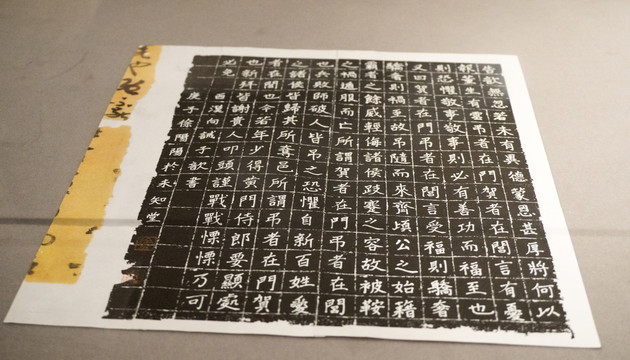 告歆無忽若未有異德蒙恩甚厚將何以
報董生有云弔者在門賀者在閭言有憂
則恐懼敬事敬事則必有善功而福至也
又曰賀者在門弔者在閭言受福則驕奢
驕奢則禍至故弔隨而來齊頃公之始藉
霸者之餘威輕侮諸侯跂蹇之容故被鞍
之禍遁服而亡所謂賀者在門弔者在閭
也兵敗師破人皆弔之恐懼自新百姓愛
之諸侯皆歸其所奪邑所謂弔者在門賀
者在閭也今若年少得黃門侍郎要顯處
也新拜皆謝貴人叩頭謹戰戰慄慄乃可
必免 漢向誡子歆書
庚子徐陽陽於未知堂